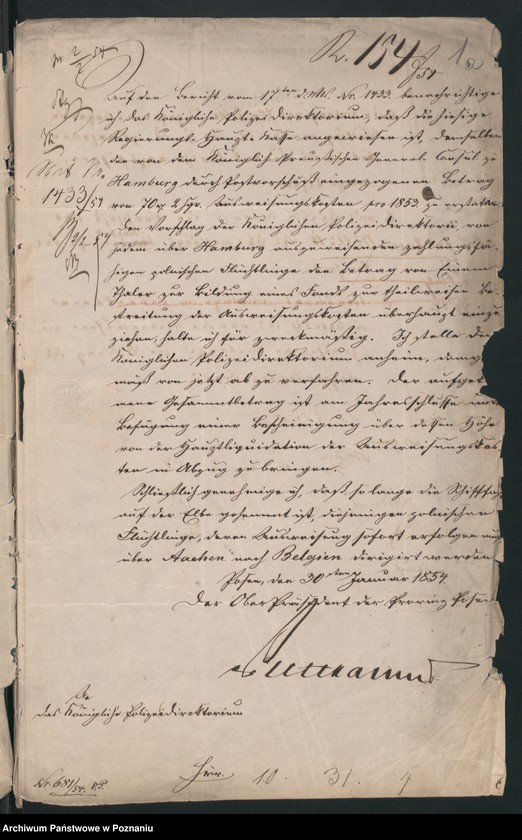 pr 2/2 54
R. 154/54
1a
Auf den Bericht vom 17ten d. Mts. Nr. 1433. benachrichtige
ich das Königliche Polizei-Direktorium, daß die hiesige
Regierungs-Haupt-Kasse angewiesen ist, demselben
den von dem Königlich Preußischen General-Consul zu
Hamburg durch Postvorschuß eingezogenen Betrag
1433/54
von 70 2 Sgr. Ausweisungskosten pro 1853. zu erstatten.
Den Vorschlag der Königlichen Polizeidirektorii, von
jedem über Hamburg auszuweisenden zahlungsfä-
higen polnischen Flüchtlinge den Betrag von Einem
Thaler zur Bildung eines Fonds zur theilweisen Be-
streitung der Ausweisungskosten überhaupt einzu
ziehen, halte ich für zweckmäßig. Ich stelle dem
Königlichen Polizeidirektorium anheim, dem
mäß von jetzt ab zu verfahren. Der aufge
Gesammtbetrag ist am Jahresschlusse
Beifügung einer Bescheinigung über dessen Höhe
von der Hauptliquidation der Ausweisungskos
ten in Abzug zu bringen.
Schließlich genehmige ich, daß, so lange die Schifffah
auf der Elbe gehemmt ist, diejenigen polnischen
Flüchtlinge, deren Ausweisung sofort erfolgen
über Aachen nach Belgien dirigirt werden
Posen, den 30ten Januar 1854.
Der OberPräsident der Provinz Posen
An
das Königliche Polizeidirektorium
Nr. 681/54. O.P.
10. 31.
Archiwum Państwowe w Poznaniu